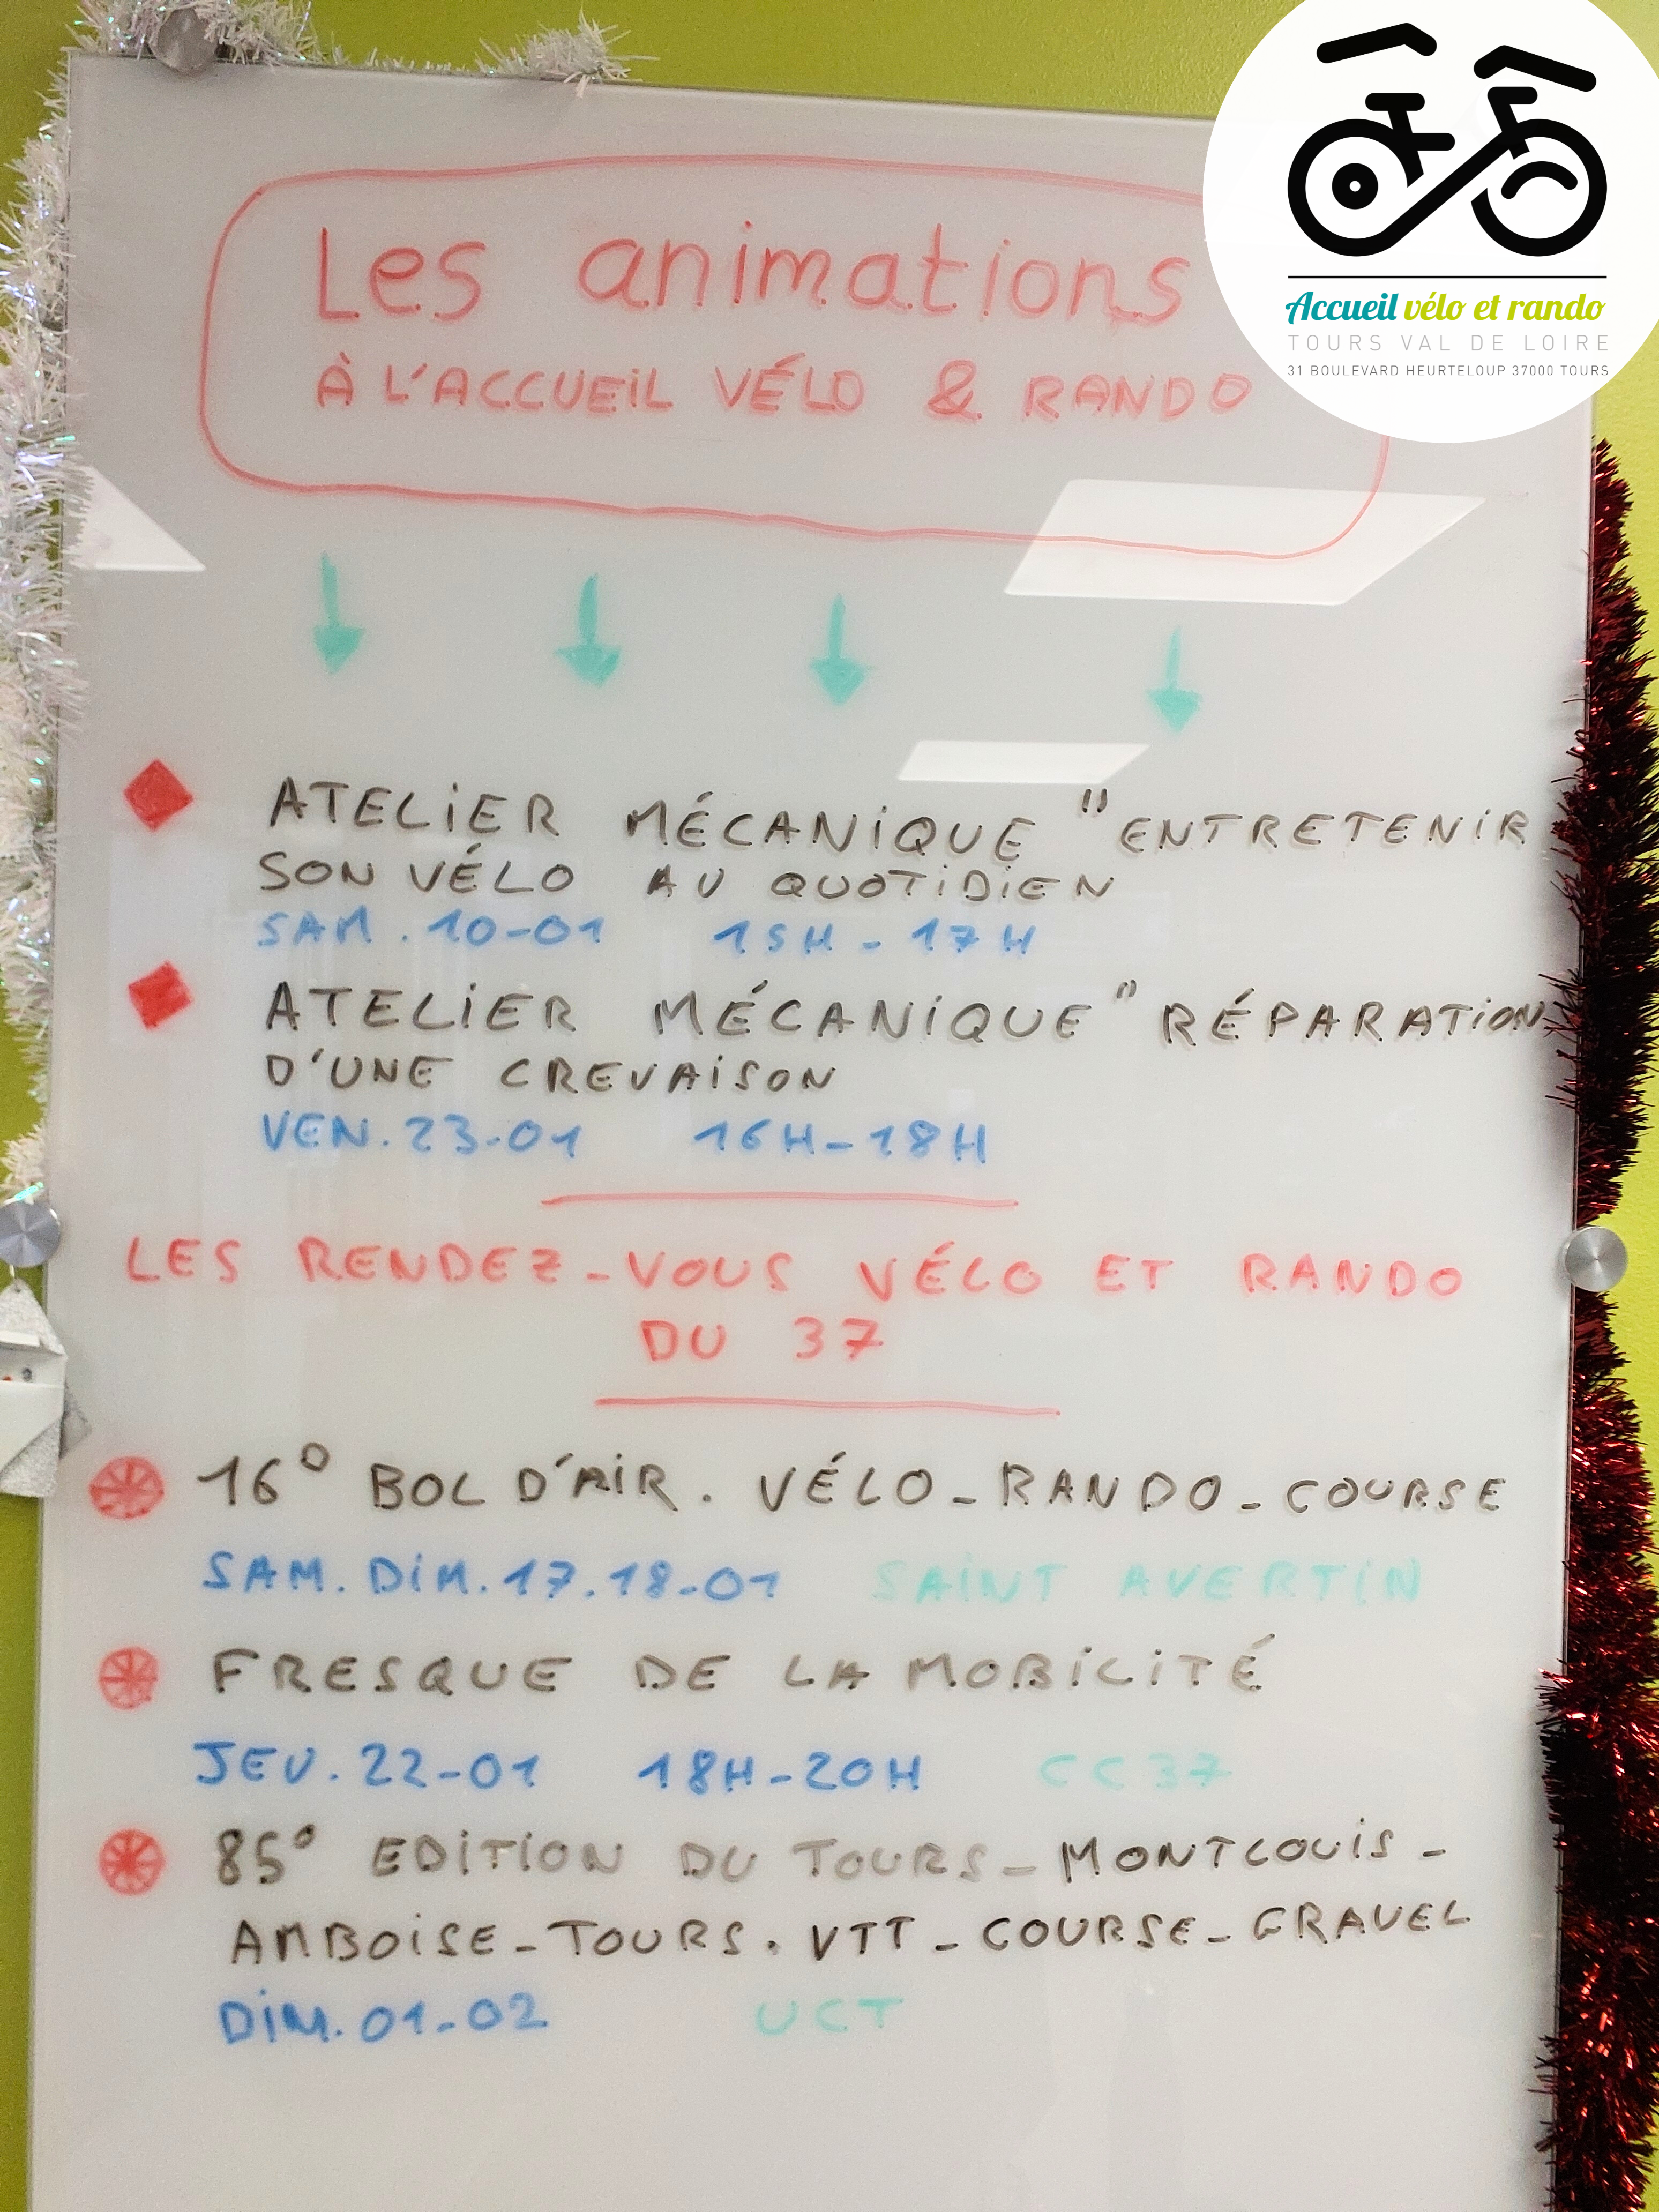 Accueil vélo et rando
TOURS VAL DE LOIRE
31 BOULEVARD HEURTELOUP 37000 TOURS
Les animations
À L'ACCUEIL VÉLO & RANDO
ATELIER MÉCANIQUE "ENTRETENIR
SON VÉLO AU QUOTIDIEN
SAM. 10-01 15H-17H
ATELIER MÉCANIQUE "RÉPARATION
D'UNE CREVAISON
VEN. 23-01 16H-18H
LES RENDEZ-VOUS VÉLO ET RANDO
DU 37
16° BOL D'AIR. VÉLO-RANDO-COURSE
SAM. DIM. 17.18-01 SAINT AVERTIN
FRESQUE DE LA MOBILITÉ
JEU. 22-01 18H-20H CC37
85° EDITION DU TOURS-MONTLOUIS-
AMBOISE-TOURS. VTT-COURSE-GRAVEL
DIM. 01-02 UCT